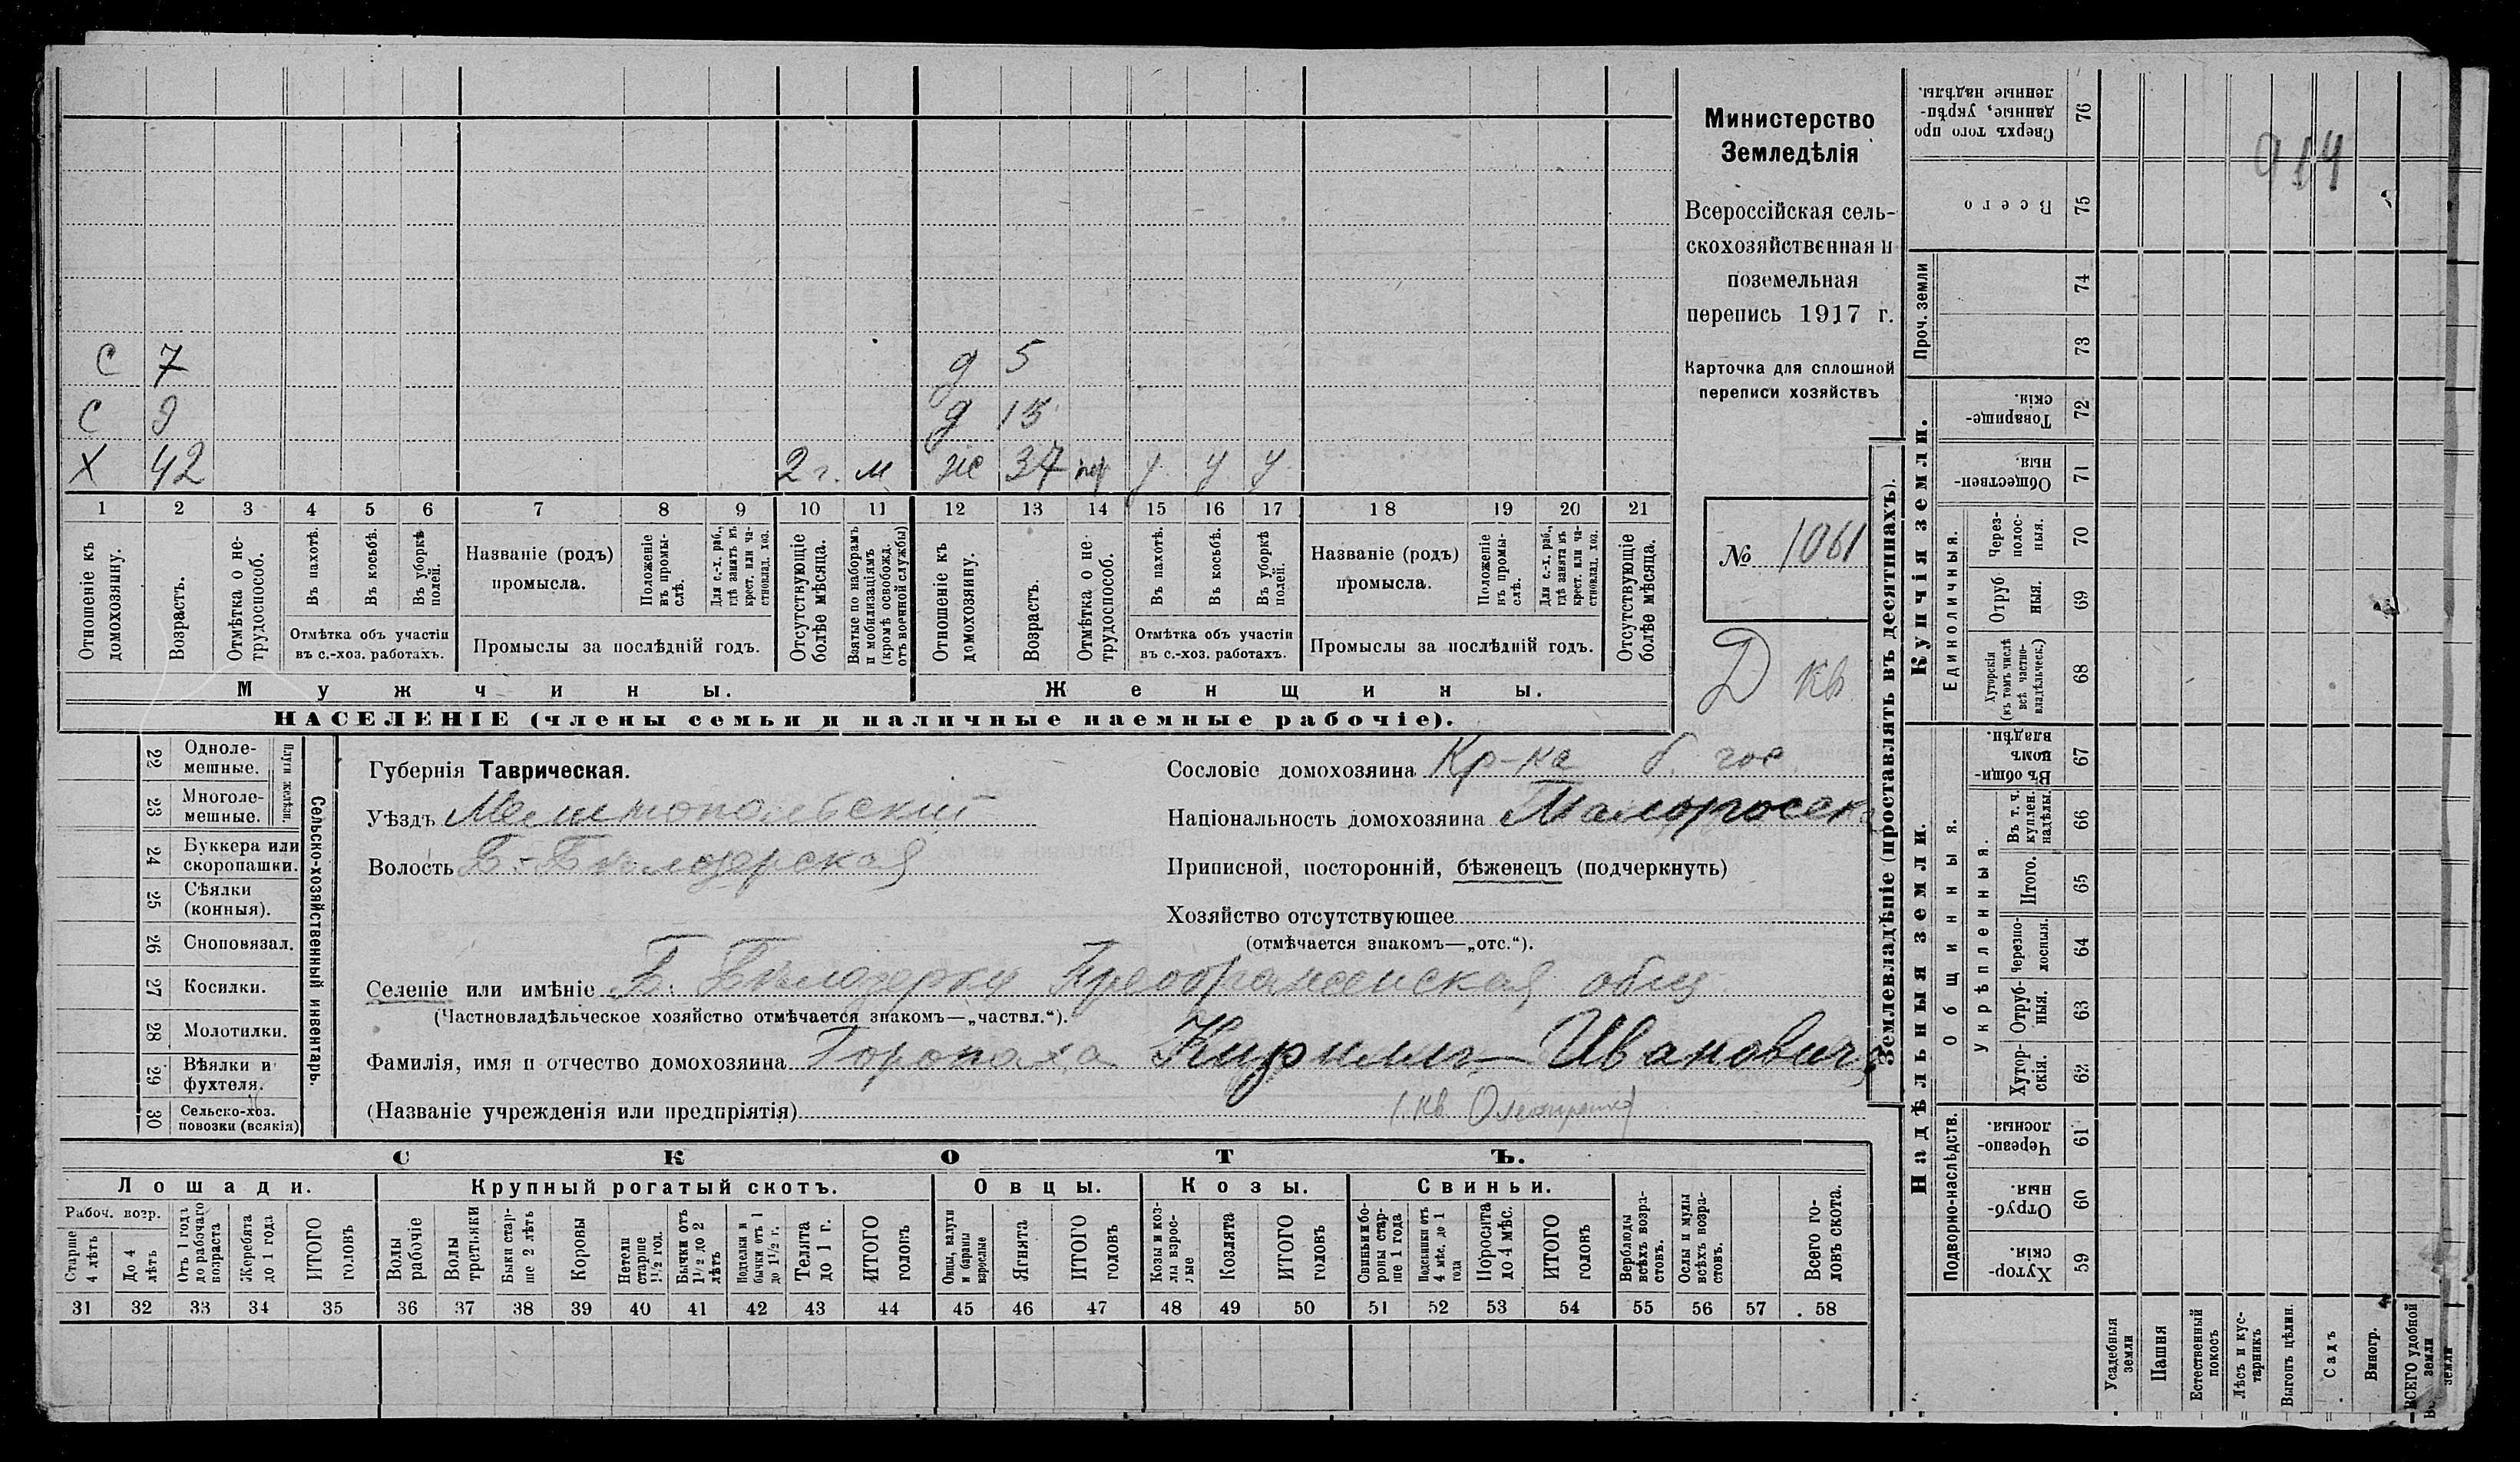 С 7 д 5
С 9 д 15
Х 42 2 г. м ж 37 у у у
1 2 3 4 5 6 7 8 9 10 11 12 13 14 15 16 17 18 19 20 21
Отношеніе къ домохозяину.
Возрастъ.
Отмѣтка о нетрудоспособ.
Въ пахотѣ.
Въ косьбѣ.
Въ уборкѣ полей.
Отмѣтка объ участіи
въ с.-хоз. работахъ.
Названіе (родъ)
промысла.
Положеніе въ промыслѣ.
Для с.-х. раб., гдѣ занятъ въ крест. или частновлад. хоз.
Промыслы за послѣдній годъ.
Отсутствующіе болѣе мѣсяца.
Взятые по наборамъ и мобилизаціямъ (кромѣ освобожд. отъ военной службы)
Отношеніе къ домохозяину.
Возрастъ.
Отмѣтка о нетрудоспособ.
Въ пахотѣ.
Въ косьбѣ.
Въ уборкѣ полей.
Отмѣтка объ участіи
въ с.-хоз. работахъ.
Названіе (родъ)
промысла.
Положеніе въ промыслѣ.
Для с.-х. раб., гдѣ занята въ крест. или частновлад. хоз.
Промыслы за послѣдній годъ.
Отсутствующіе болѣе мѣсяца.
Мужчины.
Женщины.
НАСЕЛЕНІЕ (члены семьи и наличные наемные рабочіе).
Министерство
Земледѣлія
Всероссійская сель-
скохозяйственная и
поземельная
перепись 1917 г.
Карточка для сплошной
переписи хозяйствъ
№ 1061
Д кв
Сельско-хозяйственный инвентарь.
Плуги желѣзн.
22 Одноле-
мешные.
23 Многоле-
мешные.
24 Буккера или
скоропашки.
25 Сѣялки
(конныя).
26 Сноповязал.
27 Косилки.
28 Молотилки.
29 Вѣялки и
фухтеля.
30 Сельско-хоз.
повозки (всякія)
Губернія Таврическая.
Уѣздъ Мелитопольский
Волость Б.-Бѣлозерская
Сословіе домохозяина Кр-ка б. гос.
Національность домохозяина
Приписной, посторонній, бѣженецъ (подчеркнуть)
Хозяйство отсутствующее
(отмѣчается знакомъ—„отс.“).
Селеніе или имѣніе Б. Бѣлозерки Преображенская общ
(Частновладѣльческое хозяйство отмѣчается знакомъ—„частвл.“).
Фамилія, имя и отчество домохозяина Горопаха Кириллъ Ивановичъ
(Названіе учрежденія или предпріятія)
СКОТЪ.
Лошади.
Рабоч. возр.
Старше 4 лѣтъ
До 4 лѣтъ
Отъ 1 года до рабочаго возраста
Жеребята до 1 года
ИТОГО головъ
Крупный рогатый скотъ.
Волы рабочіе
Волы третьяки
Быки старше 2 лѣтъ
Коровы
Нетели старше 1½ год.
Бычки отъ 1½ до 2 лѣтъ
Подтелки и бычки отъ 1 до 1½ г.
Телята до 1 г.
ИТОГО головъ
Овцы.
Овцы, валухи и бараны взрослые
Ягнята
ИТОГО головъ
Козы.
Козы и козлы взрослые
Козлята
ИТОГО головъ
Свиньи.
Свиньи и боровы старше 1 года
Подсвинки отъ 4 мѣс. до 1 года
Поросята до 4 мѣс.
ИТОГО головъ
Верблюды всѣхъ возрастовъ.
Ослы и мулы всѣхъ возрастовъ.
Всего головъ скота.
31 32 33 34 35 36 37 38 39 40 41 42 43 44 45 46 47 48 49 50 51 52 53 54 55 56 57 58
Землевладѣніе (проставлять въ десятинахъ).
Купчія земли.
Надѣльныя земли.
Сверхъ того проданные, укрѣпленные надѣлы. 76
Всего 75
Проч. земли
74
73
Товарищескія. 72
Общественныя. 71
Единоличныя.
Черезполосныя. 70
Отрубныя. 69
Хуторскія (въ томъ числѣ всѣ частновладѣльческ.) 68
Общинныя.
Въ общинномъ владѣн. 67
Укрѣпленныя.
Въ т. ч. куплен. надѣлы. 66
Итого. 65
Черезполосныя. 64
Отрубныя. 63
Хуторскія. 62
Подворно-наслѣдств.
Черезполосныя. 61
Отрубныя. 60
Хуторскія. 59
Усадебныя земли
Пашня
Естественный покосъ
Лѣсъ и кустарникъ
Выгонъ цѣлин.
Садъ
Виногр.
ВСЕГО удобной земли
914